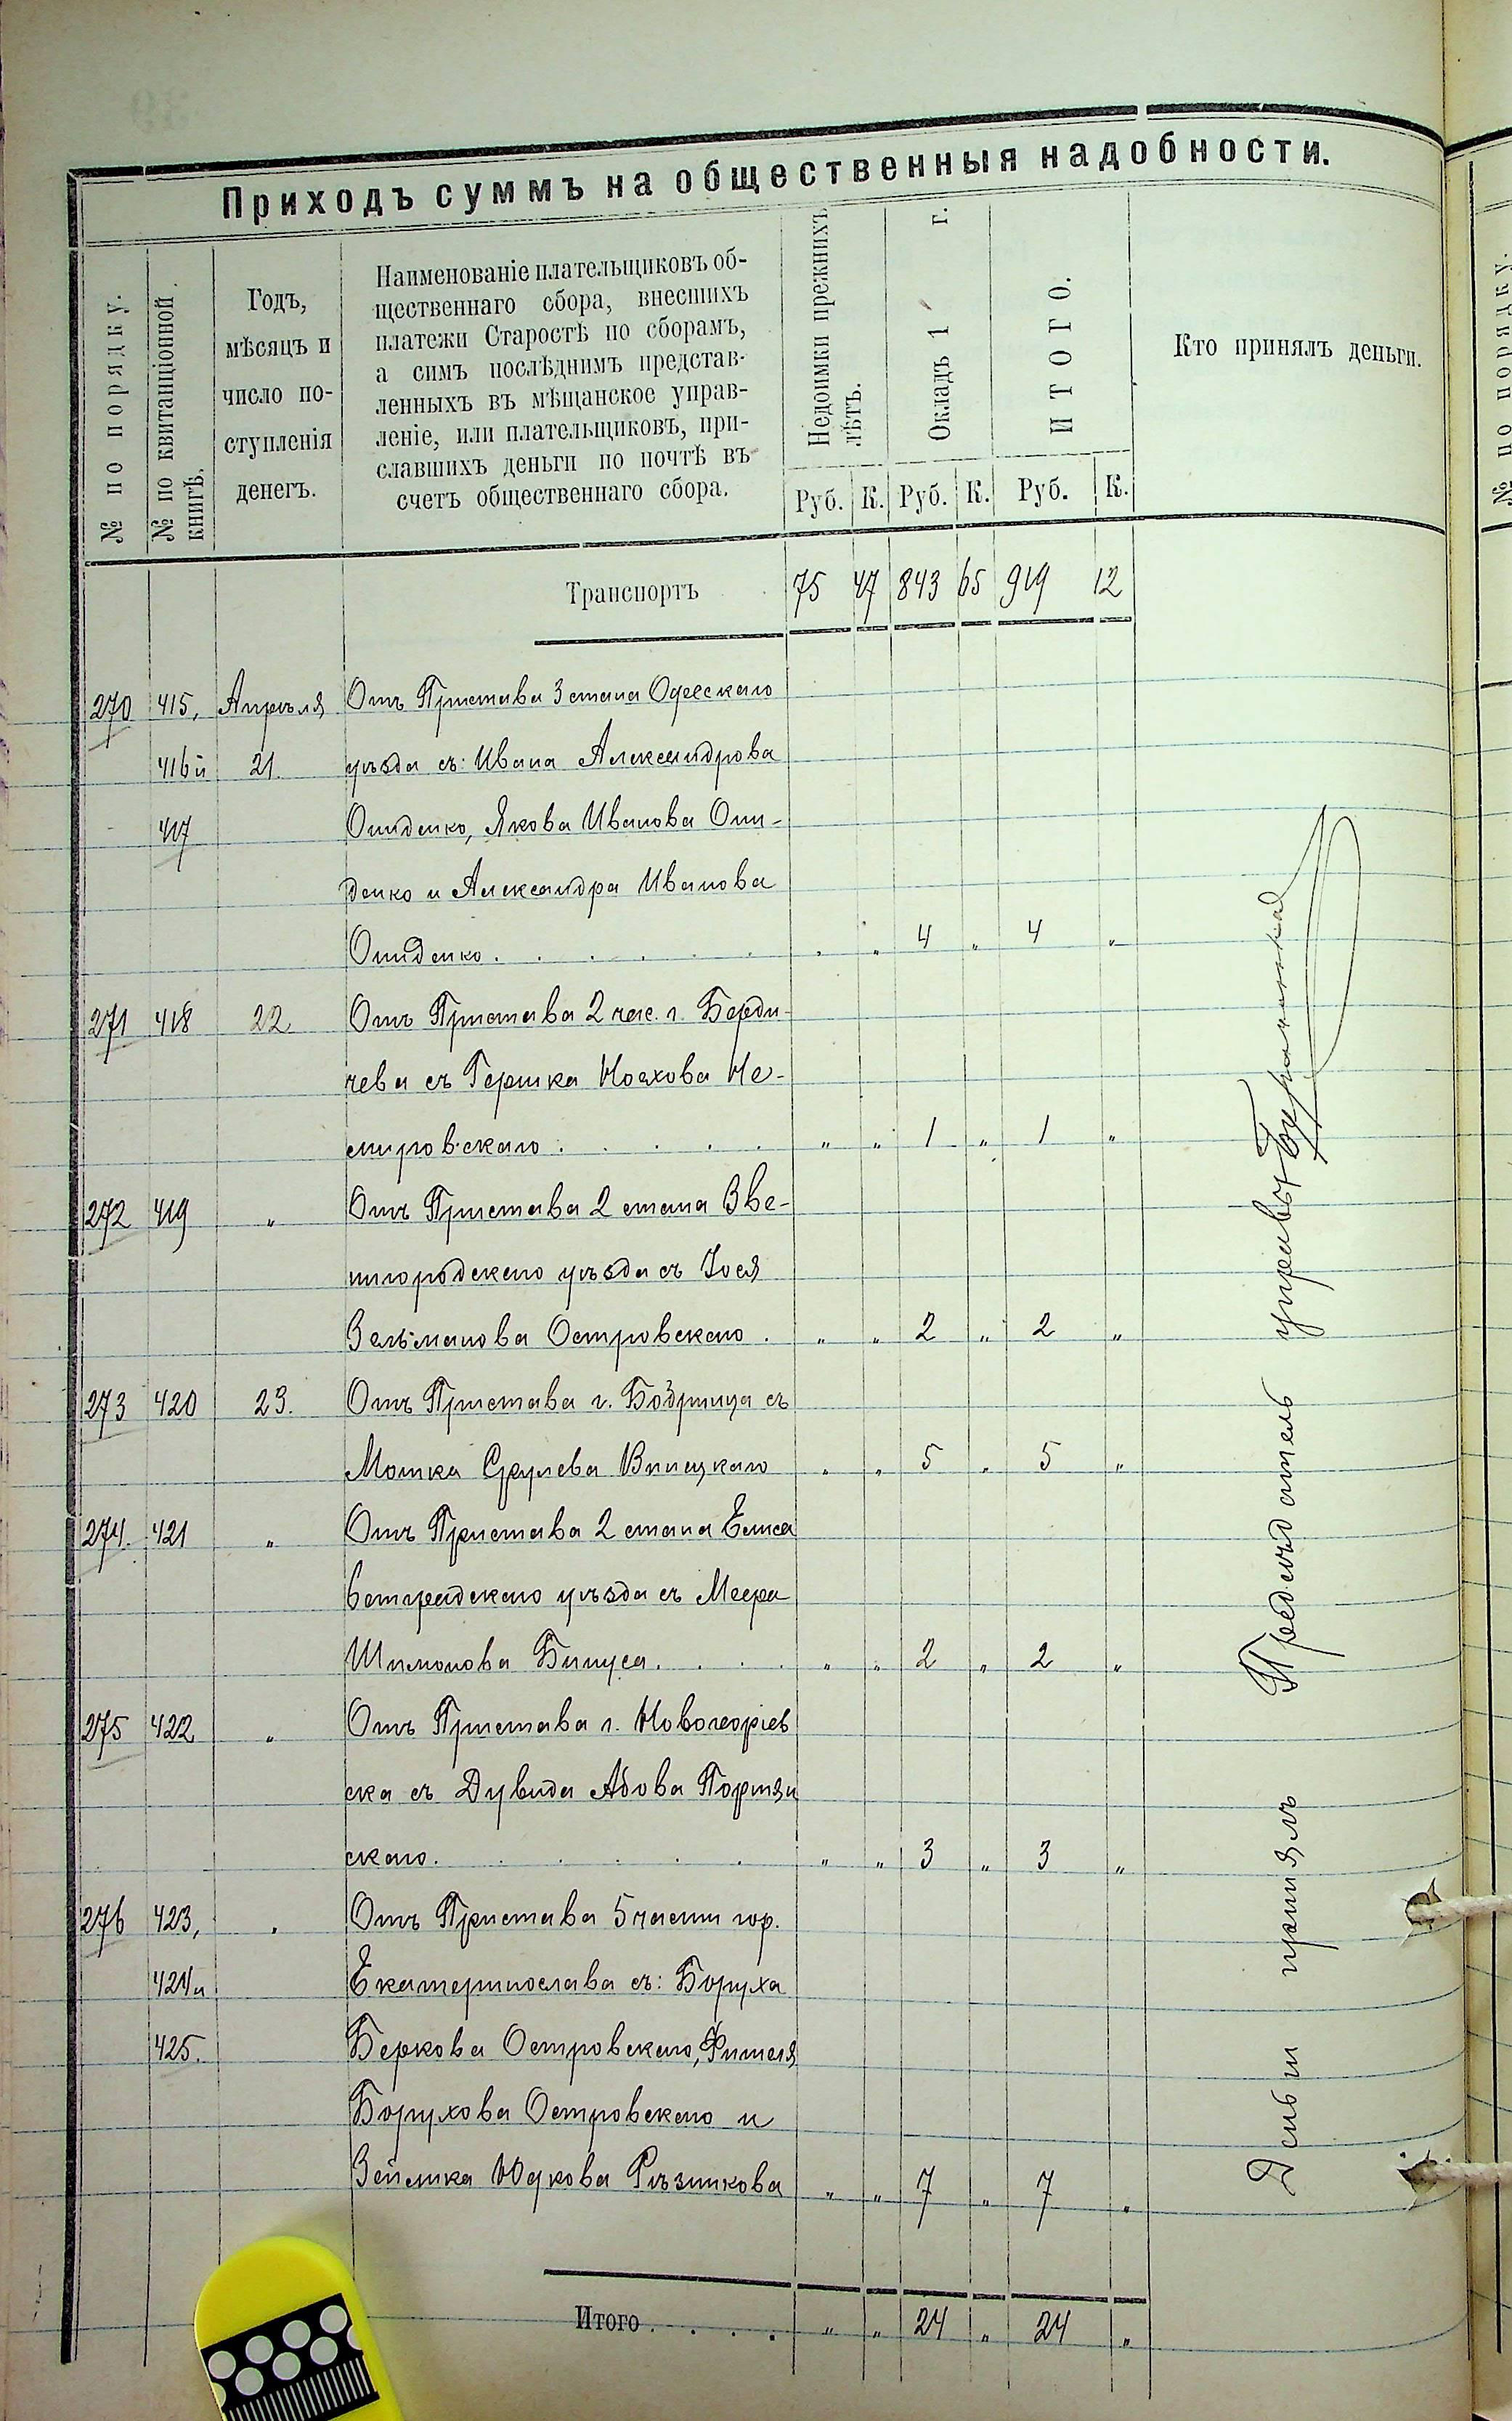 Приходъ суммъ на общественныя надобности.
№ по порядку.
№ по квитанціонной книгѣ.
Годъ, мѣсяцъ и число поступленія денегъ.
Наименованіе плательщиковъ об-
щественнаго сбора, внесшихъ
платежи Старостѣ по сборамъ,
а симъ послѣднимъ представ-
ленныхъ въ мѣщанское управ-
леніе, или плательщиковъ, при-
славшихъ деньги по почтѣ въ
счетъ общественнаго сбора.
Недоимки прежнихъ лѣтъ.
Окладъ 1 г.
ИТОГО.
Кто принялъ деньги.
Руб. К. Руб. К. Руб. К.
Транспортъ 75 47 843 65 919 12
270 415, Апрѣля Отъ Пристава 3 стана Одесскаго
416 и 21. уѣзда съ: Ивана Александрова
417 Ониденко, Якова Иванова Они-
денко и Александра Иванова
Ониденко . . . . . . . „ „ 4 „ 4 „
271 418 22 Отъ Пристава 2 час. г. Берди-
чева съ Гершка Ноахова Не-
мировскаго . . . . . „ „ 1 „ 1 „
272 419 „ Отъ Пристава 2 стана Зве-
нигородскаго уѣзда съ Іося
Зельманова Островскаго . „ „ 2 „ 2 „
273 420 23. Отъ Пристава г. Бобринца съ
Мошка Срулева Винецкаго „ „ 5 „ 5 „
274. 421 „ Отъ Пристава 2 стана Елиса
ветградскаго уѣзда съ Меера
Шимонова Бинуса. . . . „ „ 2 „ 2 „
275 422 „ Отъ Пристава г. Новогеоргіев
ска съ Дувида Абова
скаго. . . . . . „ „ 3 „ 3 „
276 423, „ Отъ Пристава 5 части гор.
424 и Екатеринослава съ: Боруха
425. Беркова Островскаго,
Борухова Островскаго и
Зейлика Юдкова Рѣзникова „ „ 7 „ 7 „
Итого . . . . „ „ 24 „ 24 „
Деньги принялъ Предсѣдатель управы